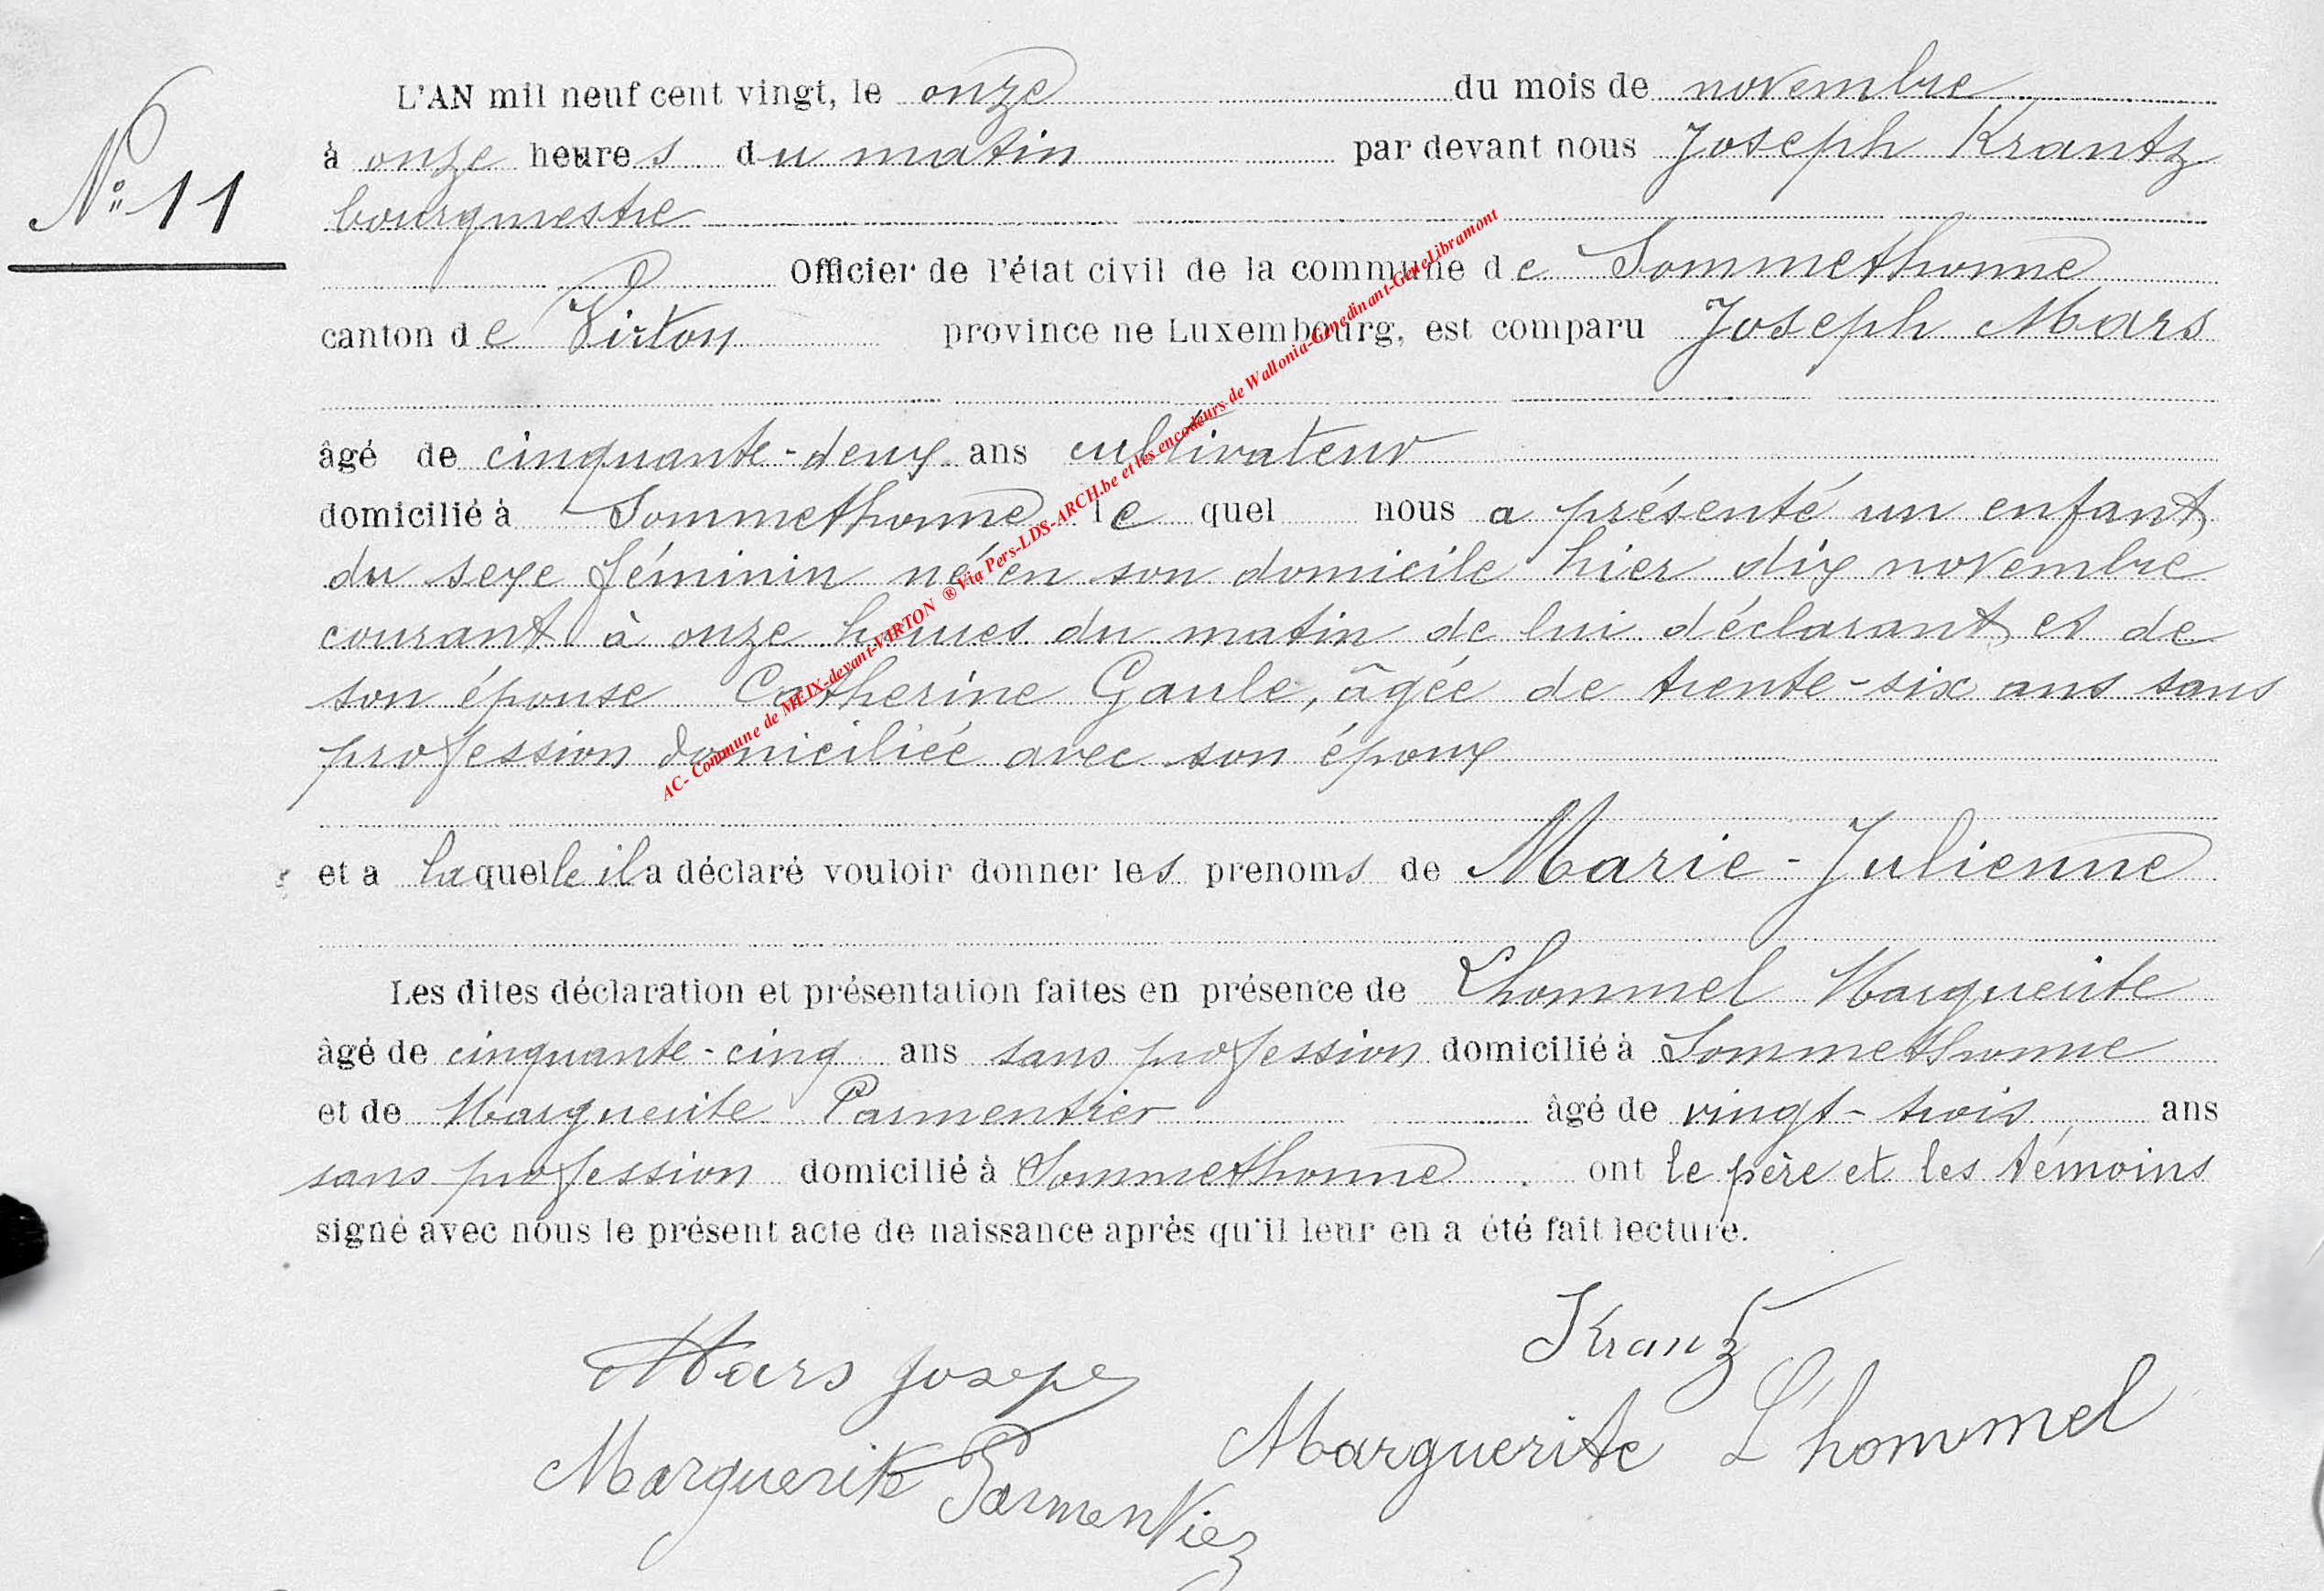 L'AN mil neuf cent vingt, le onze du mois de novembre
N° 11
à onze heures du matin par devant nous Joseph Krantz
bourgmestre
Officier de l'état civil de la commune de Sommethonne
canton de Virton province ne Luxembourg, est comparu Joseph Mars
âgé de cinquante-deux ans cultivateur
domicilié à Sommethonne lequel nous a présenté un enfant
du sexe féminin né en son domicile hier dix novembre
courant à onze heures du matin de lui déclarant et de
son épouse Catherine Gaule, âgée de trente-six ans sans
profession domiciliée avec son époux
AC- Commune de MEIX-devant-VIRTON ® Via Pers-LDS-ARCH.be et les encodeurs de Wallonia-Genedinant-GeneLibramont
et a laquelle il a déclaré vouloir donner les prenoms de Marie-Julienne
Les dites déclaration et présentation faites en présence de Lhommel Marguerite
âgé de cinquante-cinq ans sans profession domicilié à Sommethonne
et de Marguerite Parmentier âgé de vingt-trois ans
sans profession domicilié à Sommethonne. ont le père et les témoins
signé avec nous le présent acte de naissance après qu'il leur en a été fait lecture.
Krantz
Mars Joseph
Marguerite L'hommel
Marguerite Parmentier